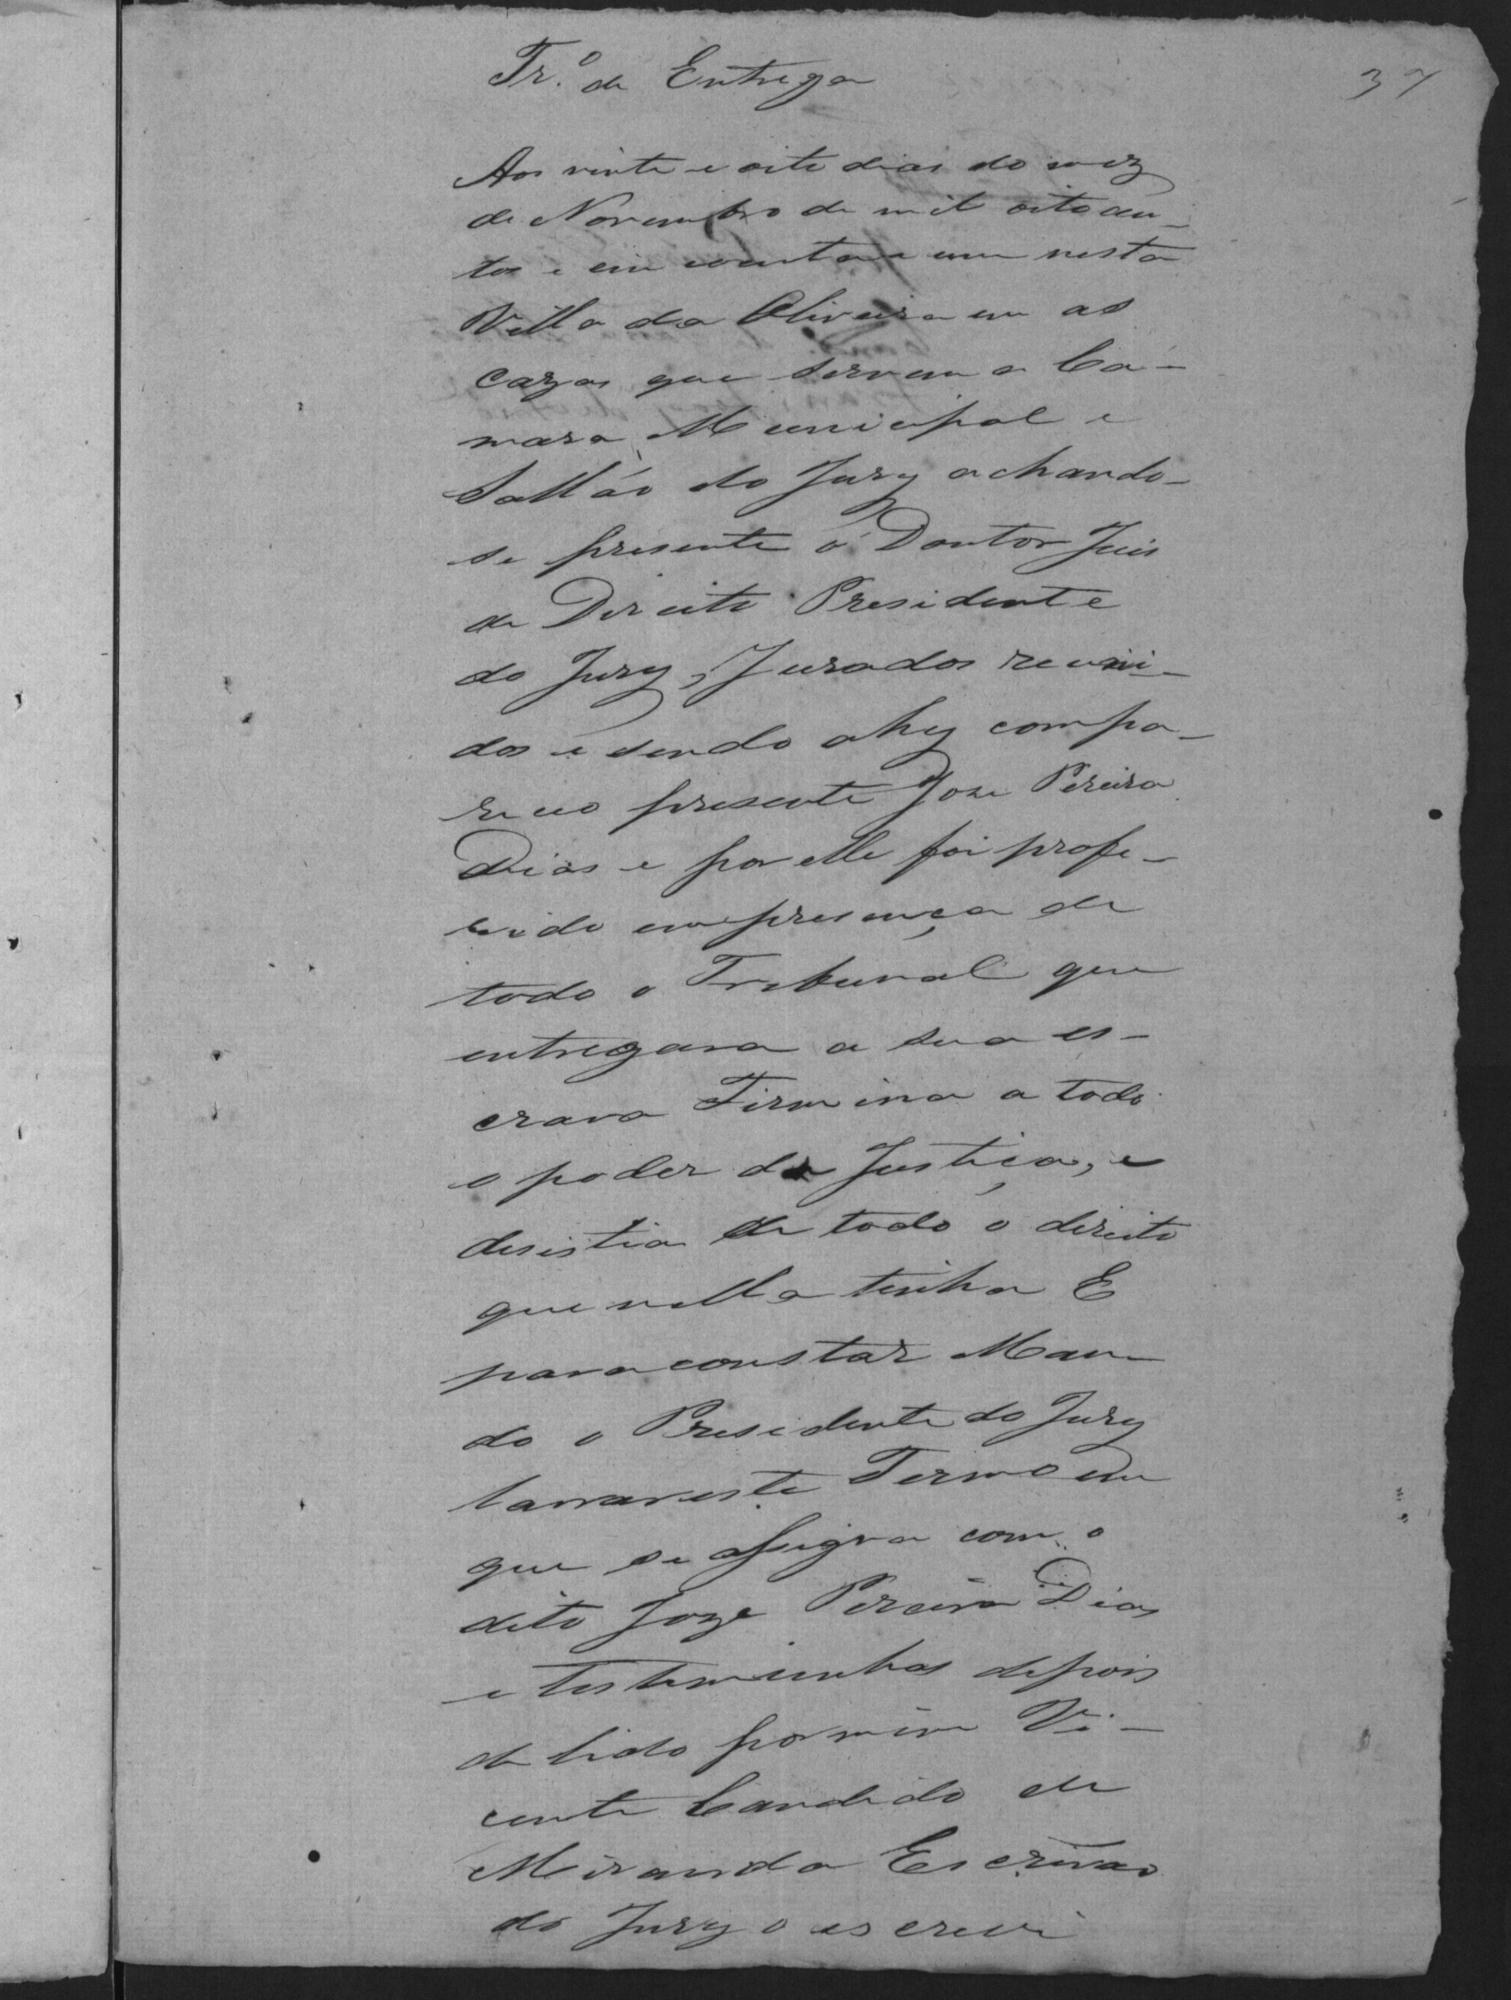 Tr.º de Entrega
37
Aos vinte e oito dias do mez
de Novembro de mil oitocen-
tos e cincoenta e um nesta
Villa da Oliveira em as
cazas que servem a Ca-
mara Municipal e
Sallão do Jury achando-
se presente o Doutor Juis
de Direito Presidente
do Jury, Jurados reuni-
dos e sendo ahy compa-
receo presente Joze Pereira
Dias e por elle foi profe-
rido em presença de
todo o Tribunal que
entregava a sua es-
crava Firmina a todo
o poder da Justiça, e
desistia de todo o direito
que nella tinha E
para constar Man-
do o Presidente do Jury
lavrar este Termo em
que se assigna com o
dito Joze Pereira Dias
e testemunhas depois
de lido por mim Vi-
cente Candido de
Miranda Escrivão
do Jury o escrevi